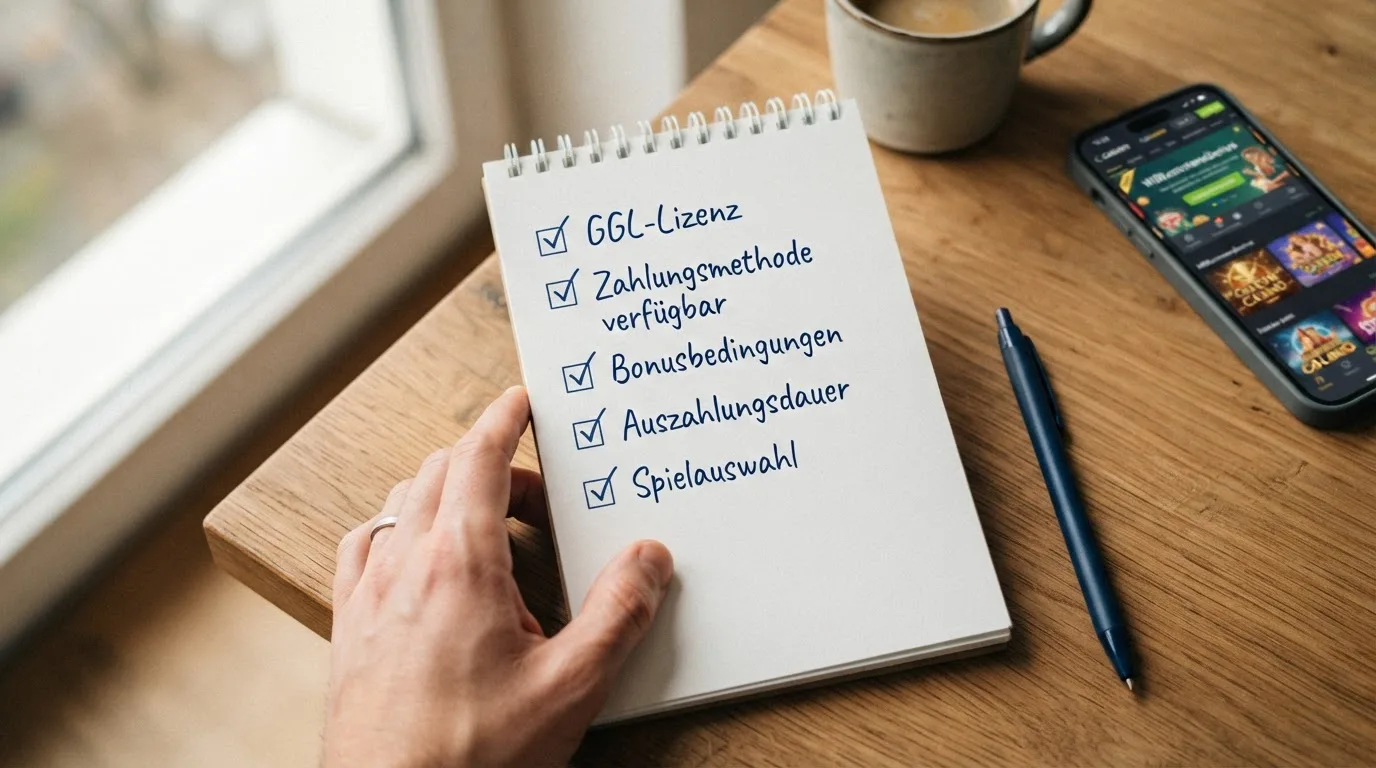 GGL-Lizenz
Zahlungsmethode
verfügbar
Bonusbedingungen
Auszahlungsdauer
Spielauswahl